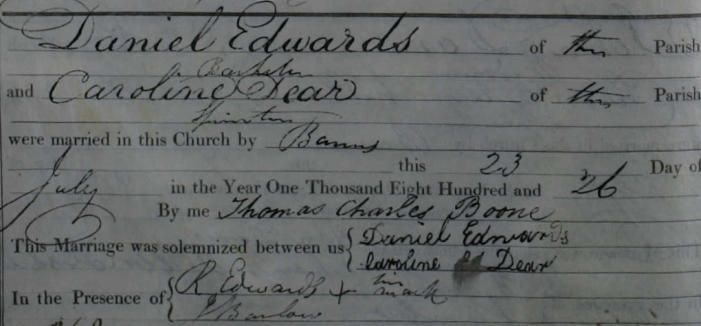 Daniel Edwards of this Parish
a Bachelor
and Caroline Dear of this Parish
Spinster
were married in this Church by Banns
this 23 Day of
July in the Year One Thousand Eight Hundred and 26
By me Thomas Charles Boone
This Marriage was solemnized between us { Daniel Edwards
Caroline Dear
In the Presence of { R Edwards + his mark
J Barlow